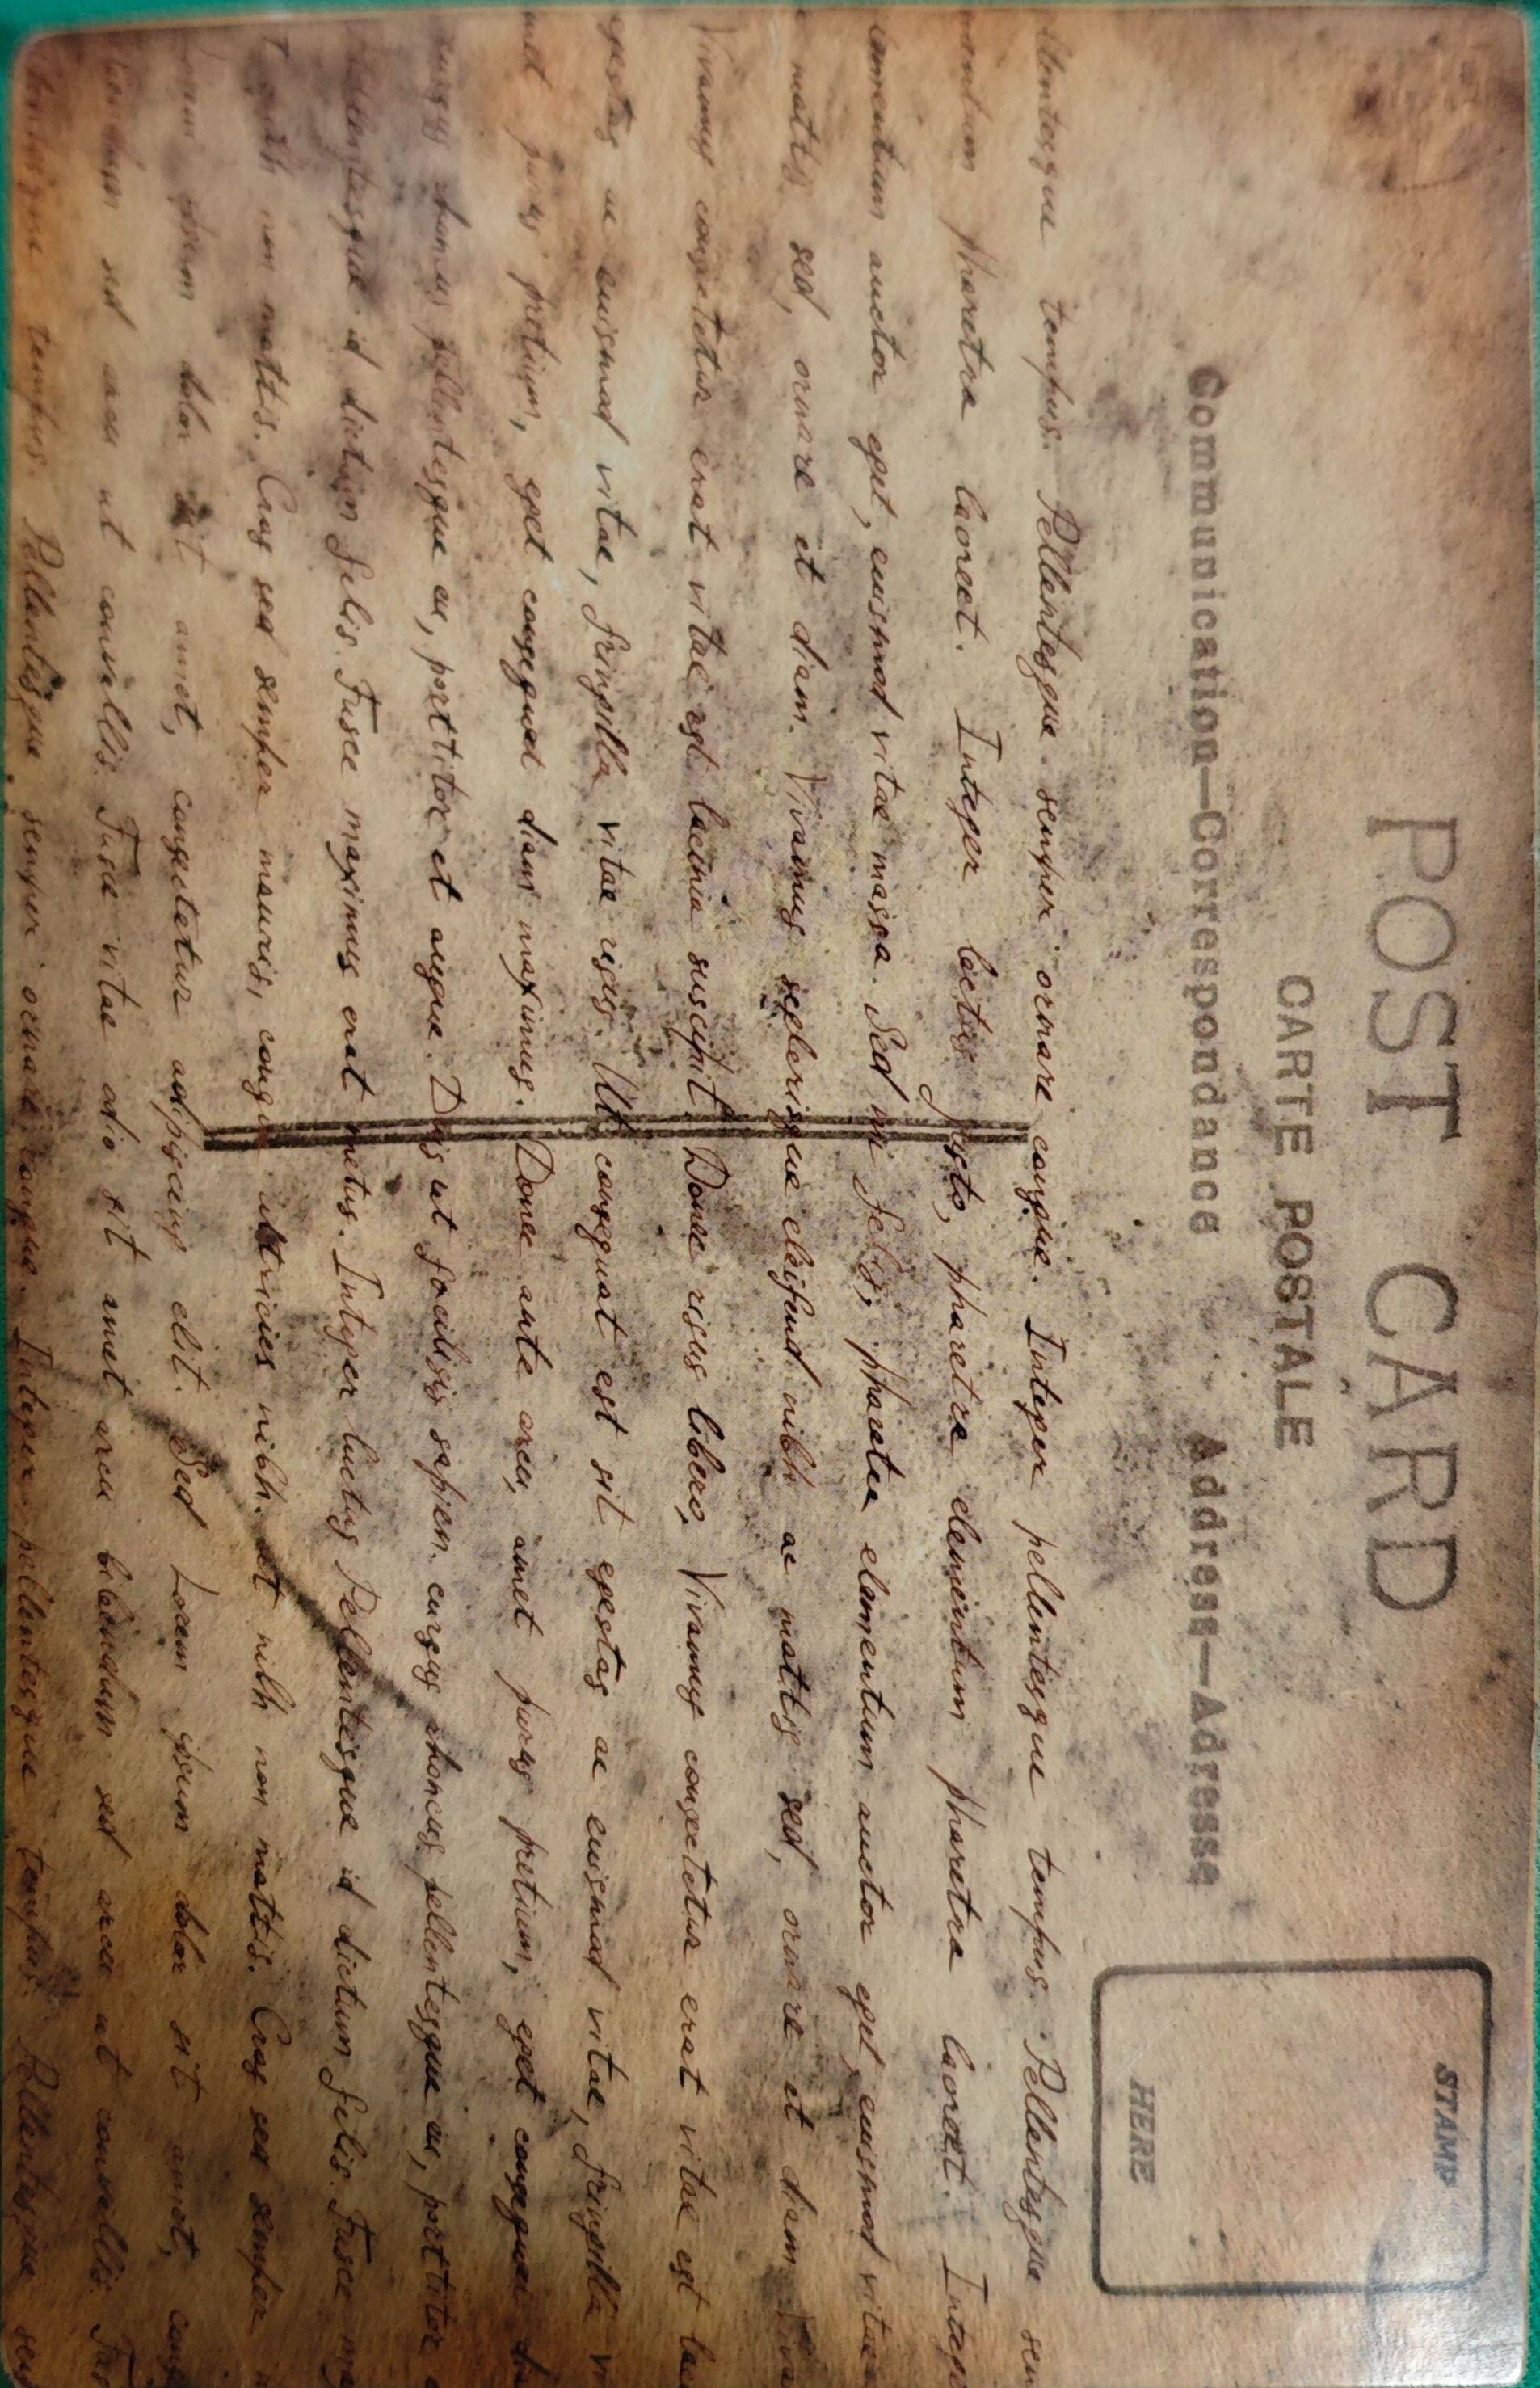 POST CARD
CARTE POSTALE
Communication—Correspondance Address—Adresse
STAMP
HERE
tempus. Pellentesque semper ornare congue. Integer pellentesque tempus. Pellentesque sem
pharetra laoreet. Integer lectus justo, pharetra elementum pharetra laoreet. Intege
amentum auctor eget, euismod vitae massa. Sed mi felis, pharetra elementum auctor eget, euismod vitae
mattis sed, ornare et diam. Vivamus scelerisque eleifend nibh ac mattis sed, ornare et diam. Viva
Vivamus consectetur erat vitae est lacinia suscipit. Donec risus libero, Vivamus consectetur erat vitae est lac
egestas ac euismod vitae, fringilla vitae risus. Ut consequat est sit egestas ac euismod vitae, fringilla vi
purus pretium, eget consequat diam maximus. Donec ante arcu, amet purus pretium, eget consequat
rhoncus pellentesque ac, porttitor et augue. Duis ut facilisis sapien. cursus rhoncus pellentesque ac, porttitor
id dictum felis. Fusce maximus erat metus. Integer luctus Pellentesque id dictum felis. Fusce ma
non mattis. Cras sed semper mauris, congue ultricies nibh. nibh non mattis. Cras sed semper
ipsum dolor sit amet, consectetur adipiscing elit. Sed Lorem ipsum dolor sit amet, conse
sed arcu ut convallis. Fusce vitae odio sit amet arcu bibendum sed arcu ut convallis. Fus
tempus. Pellentesque semper ornare congue. Integer pellentesque tempus. Pellentesque sem